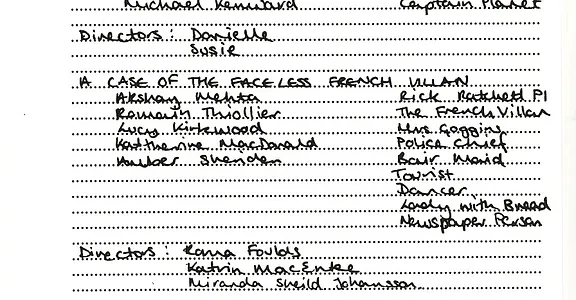 Michael Kenward Captain Planet
Directors: Danielle
Susie
A CASE OF THE FACELESS FRENCH VILLAN
Akshay Mehta Rick Ratchett PI
Romain Thiollier The French Villan
Lucy Kirkwood Mrs Goggins
Kattherine MacDonald Police Chief
Amber Sheridan Bair Maid
Tourist
Dancer
Lady with Bread
Newspaper Person
Directors: Rona Foulds
Katrin MacEntee
Miranda Sheild Johansson